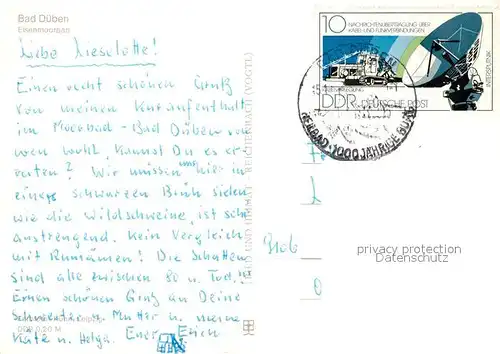 Bad Düben
Eisenmoorbad
Liebe Lieselotte!
Einen recht schönen Gruß
von meinen Kuraufenthalt
im Moorbad - Bad Düben von
wen wohl, kannst Du es er-
raten? Wir müssen uns hier in
einer schwarzen Brüh sielen
wie die Wildschweine, ist sehr
Anstrengend. Kein Vergleich
mit Rumänien! Die Schatten
sind alle zwischen 80 u. Tod,
Einen schönen Gruß an Deine
Schwester u. Mutter u. meine
Käte u. Helga. Euer Erich
BILD UND HEIMAT REICHENBACH (VOGTL)
10 NACHRICHTENÜBERTRAGUNG ÜBER
KABEL- UND FUNKVERBINDUNGEN
DDR DEUTSCHE POST
INTERFUNK
1000 JÄHRIGE
privacy protection
Datenschutz